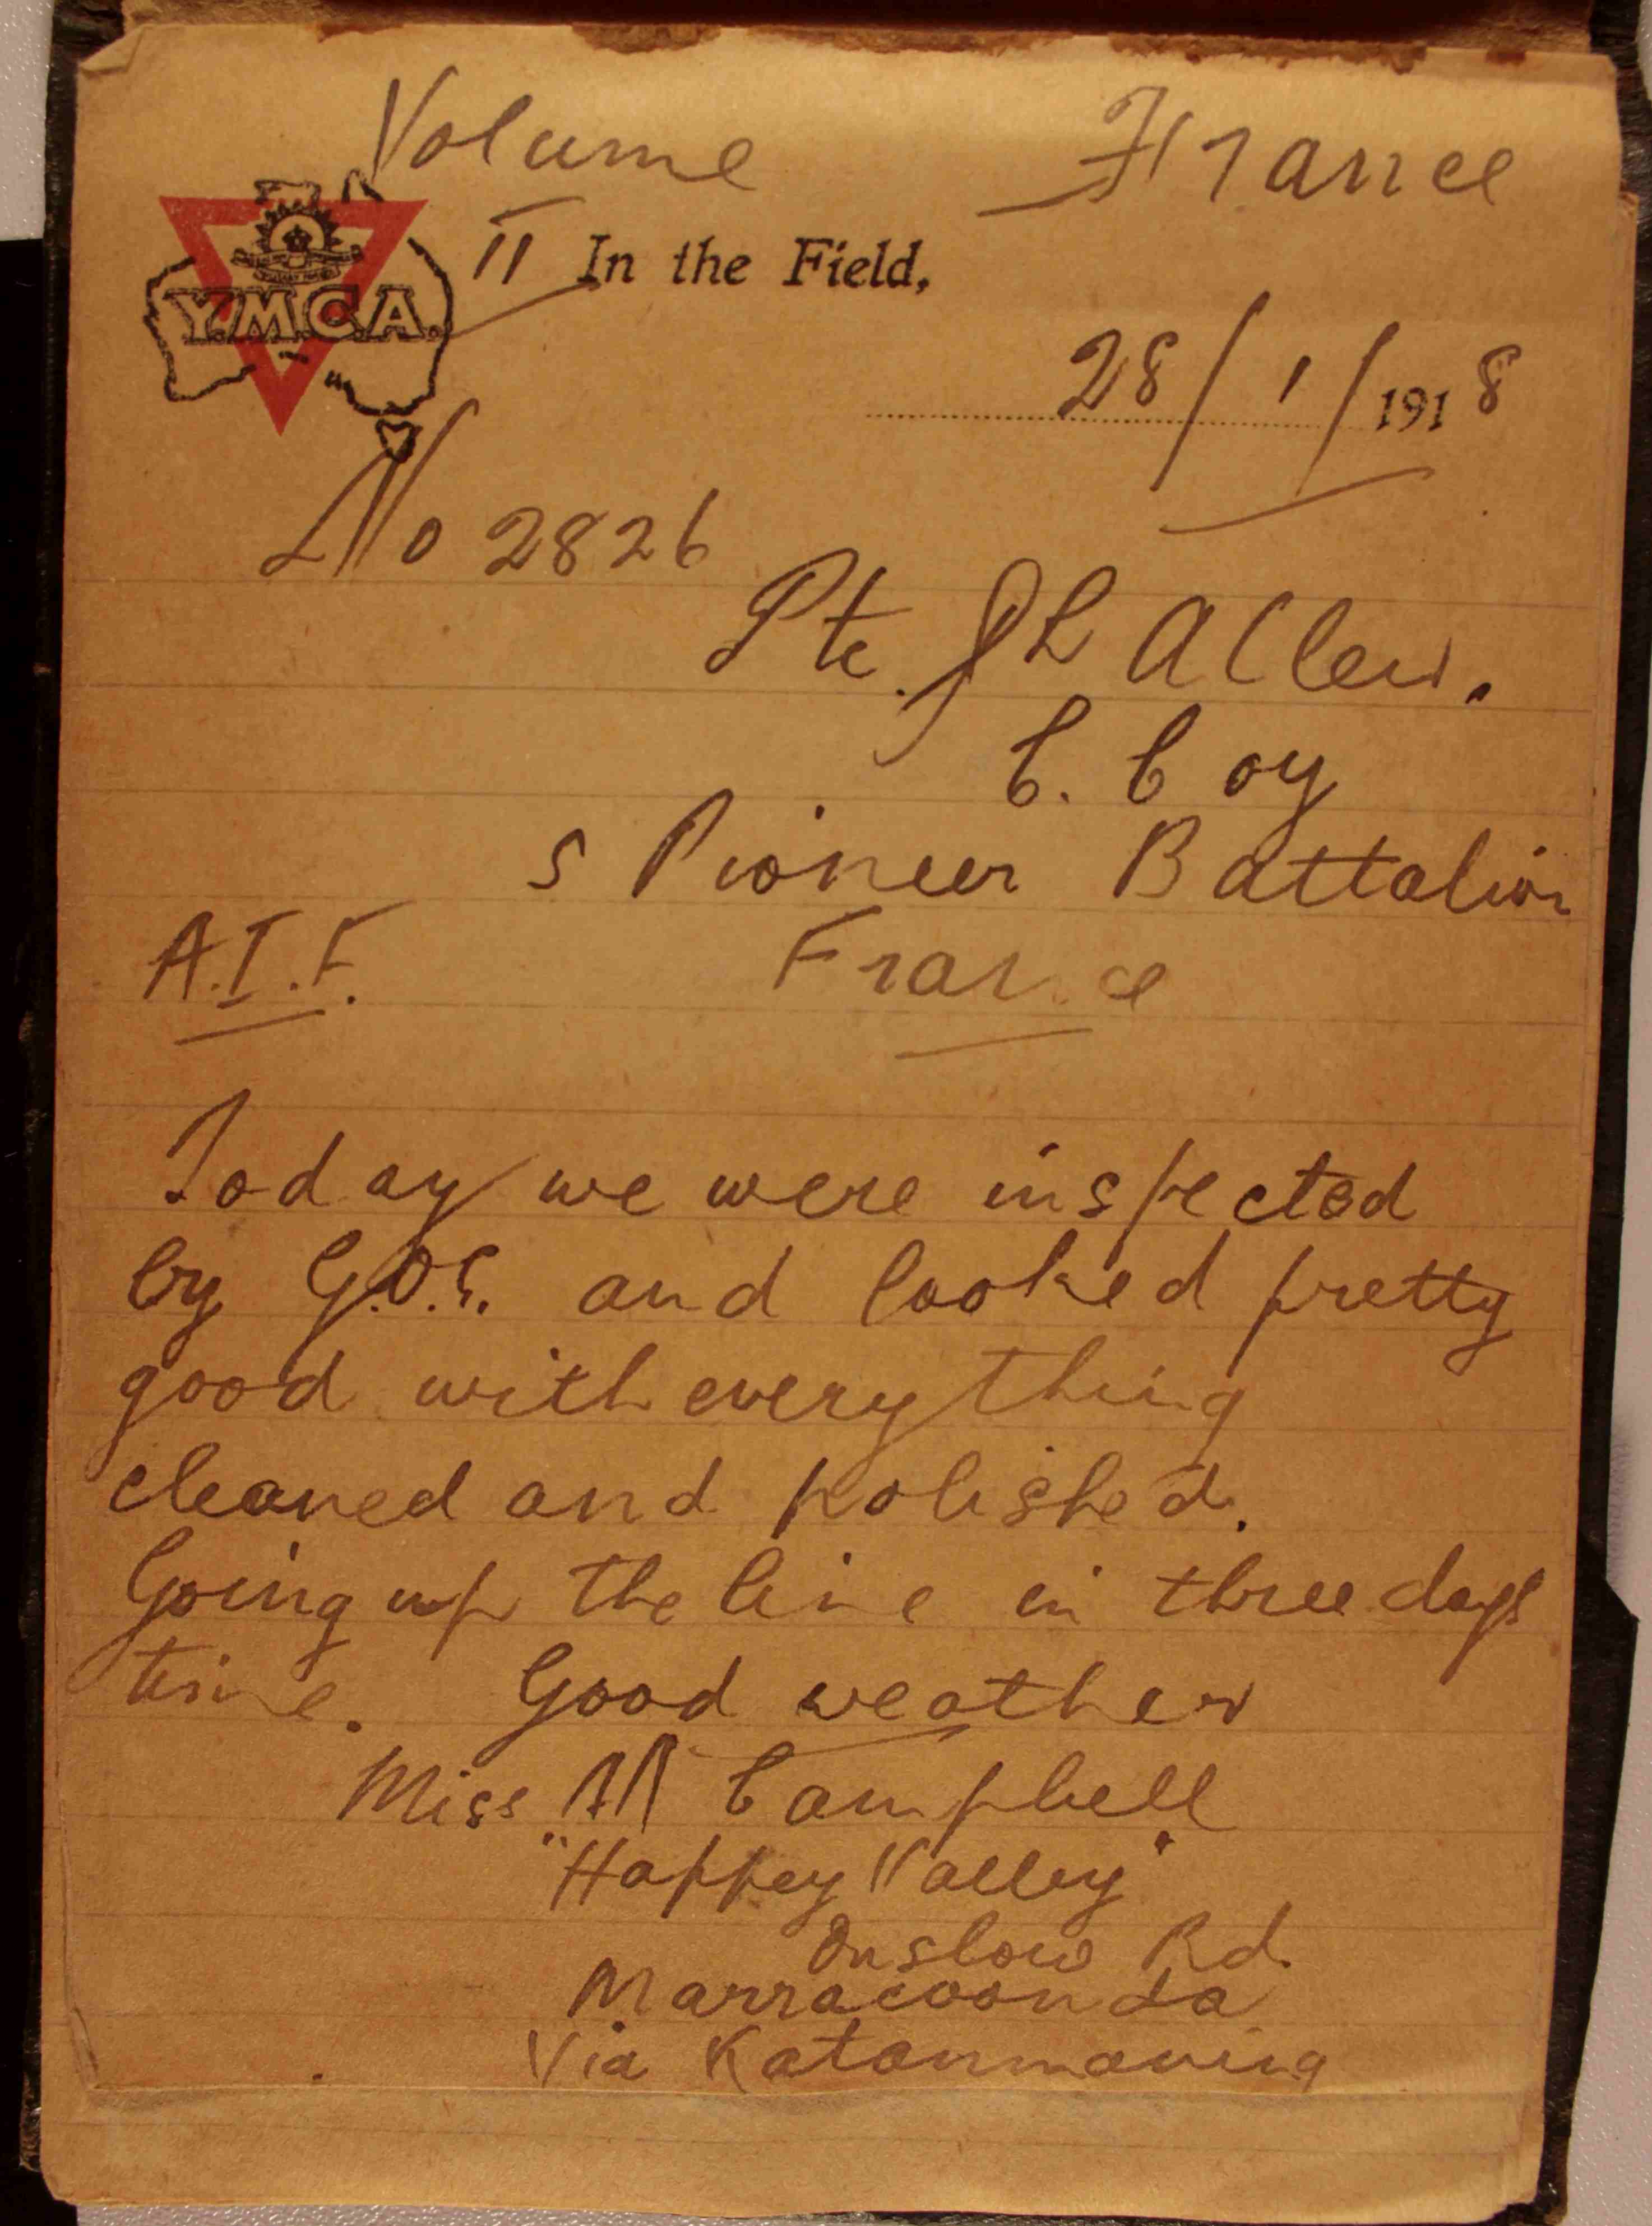 Volume France
II In the Field,
Y.M.C.A.
28/1/1918
No 2826
Pte. J L Allen.
C. Coy
5 Pioneer Battalion
A.I.F. France
Today we were inspected
by G.O.C. and looked pretty
good with everything
cleaned and polished.
Going up the line in three days
time. Good weather
Miss M Campbell
"Happey Valley"
Onslow Rd.
Marracoonda
Via Katanmaning